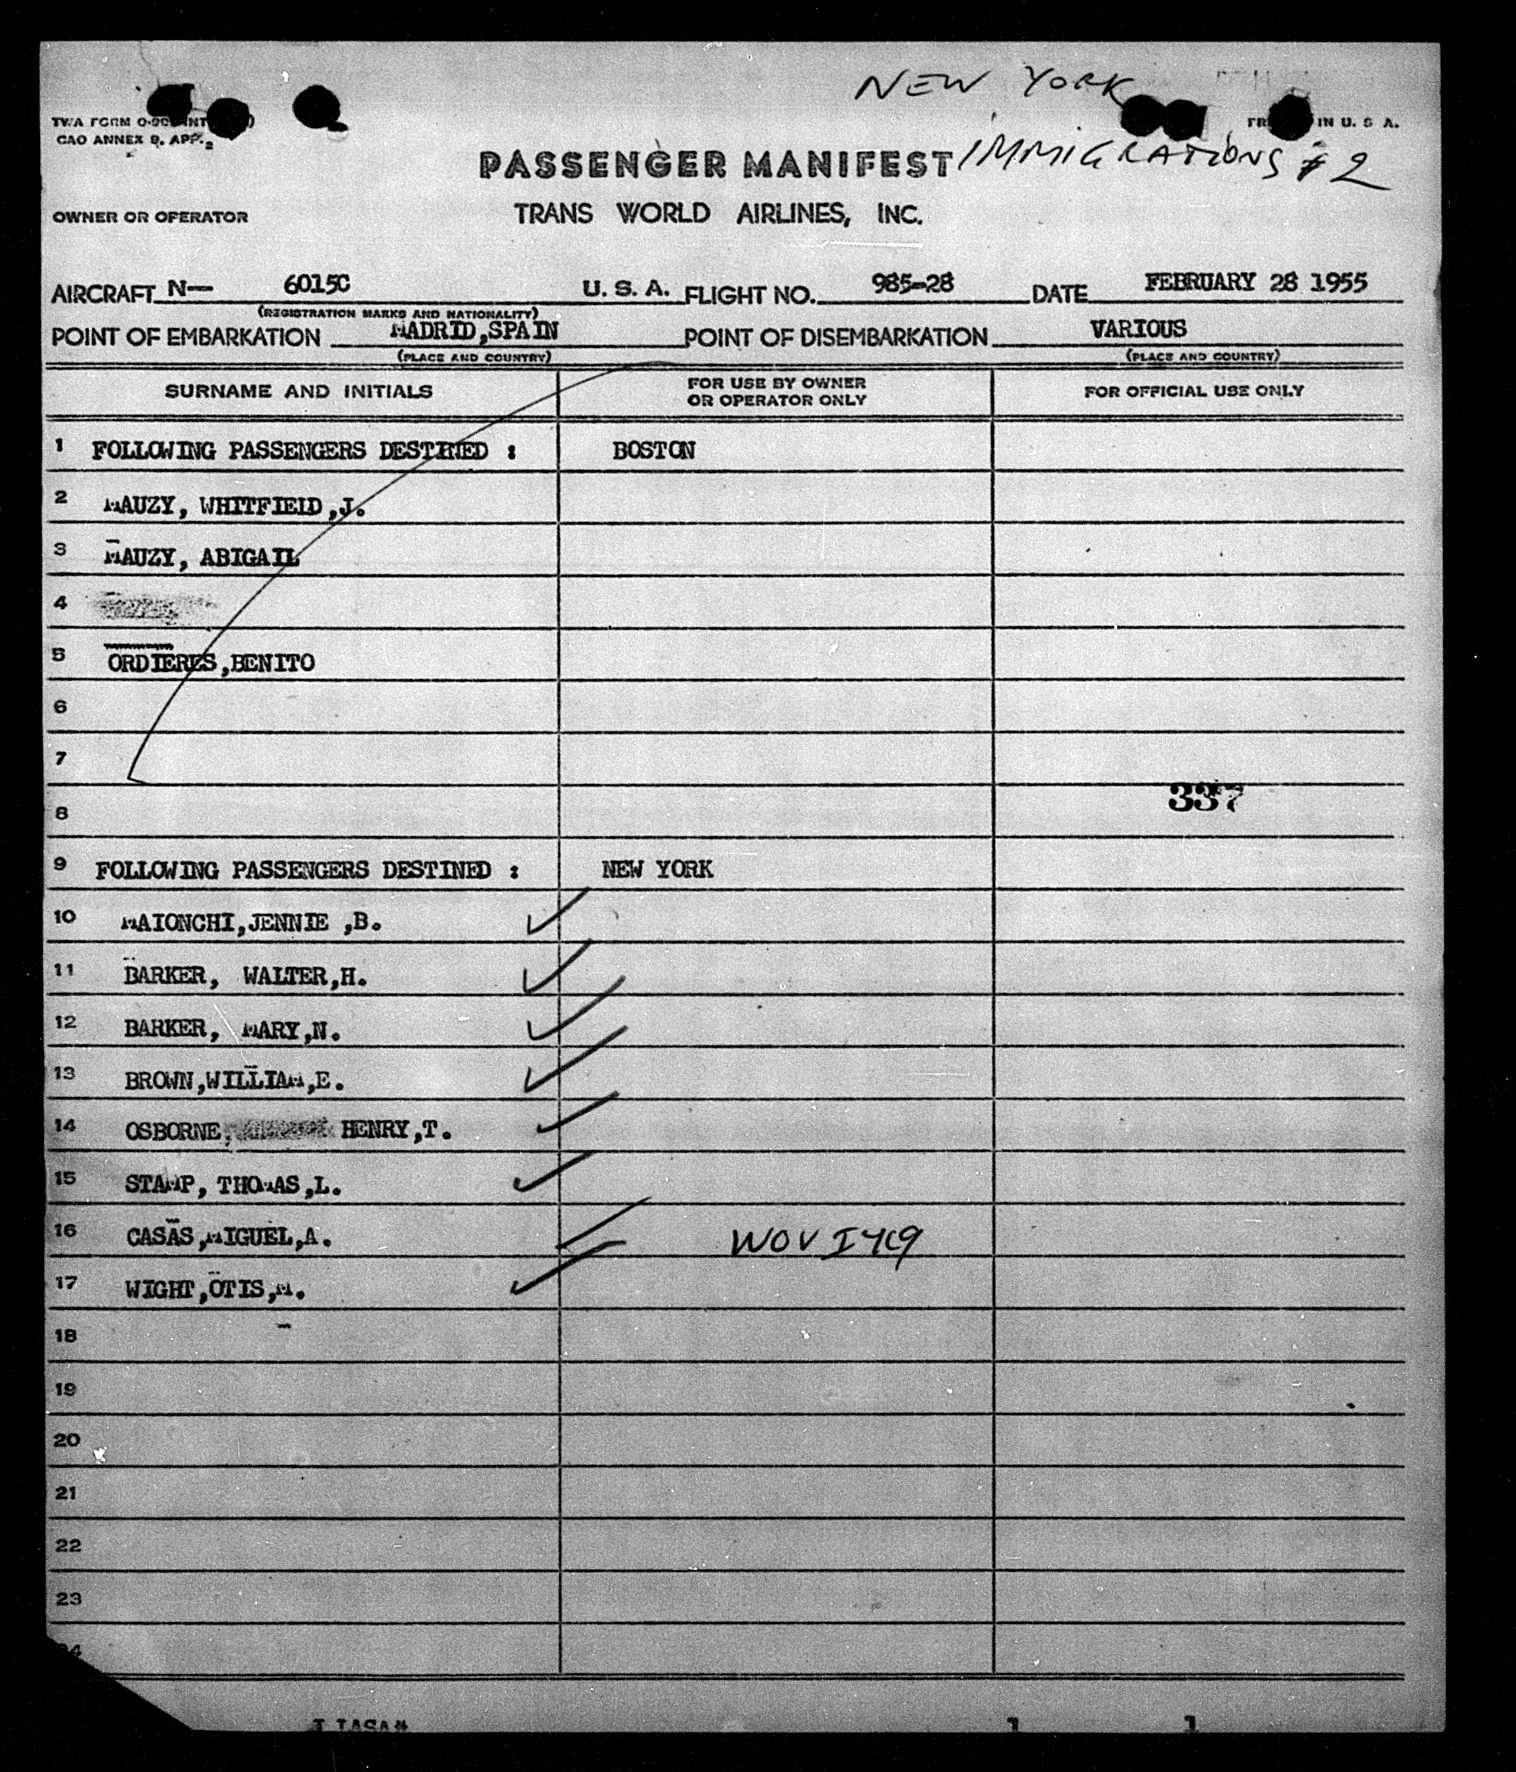 NEW YORK
CAO ANNEX 9. APP. 2
IN U. S. A.
PASSENGER MANIFEST IMMIGRATIONS # 2
OWNER OR OPERATOR TRANS WORLD AIRLINES, INC.
AIRCRAFT N— 6015C U. S. A. FLIGHT NO. 985-28 DATE FEBRUARY 28 1955
(REGISTRATION MARKS AND NATIONALITY)
POINT OF EMBARKATION MADRID,SPAIN POINT OF DISEMBARKATION VARIOUS
(PLACE AND COUNTRY) (PLACE AND COUNTRY)
SURNAME AND INITIALS FOR USE BY OWNER OR OPERATOR ONLY FOR OFFICIAL USE ONLY
1 FOLLOWING PASSENGERS DESTINED : BOSTON
2 MAUZY, WHITFIELD,J.
3 MAUZY, ABIGAIL
4
5 ORDIERES,BENITO
6
7
337
8
9 FOLLOWING PASSENGERS DESTINED : NEW YORK
10 MAIONCHI,JENNIE ,B.
11 BARKER, WALTER,H.
12 BARKER, MARY,N.
13 BROWN,WILLIAM,E.
14 OSBORNE, HENRY,T.
15 STAMP, THOMAS,L.
16 CASAS,MIGUEL,A. WOV I
17 WIGHT,OTIS,M.
18
19
20
21
22
23
24
1 1